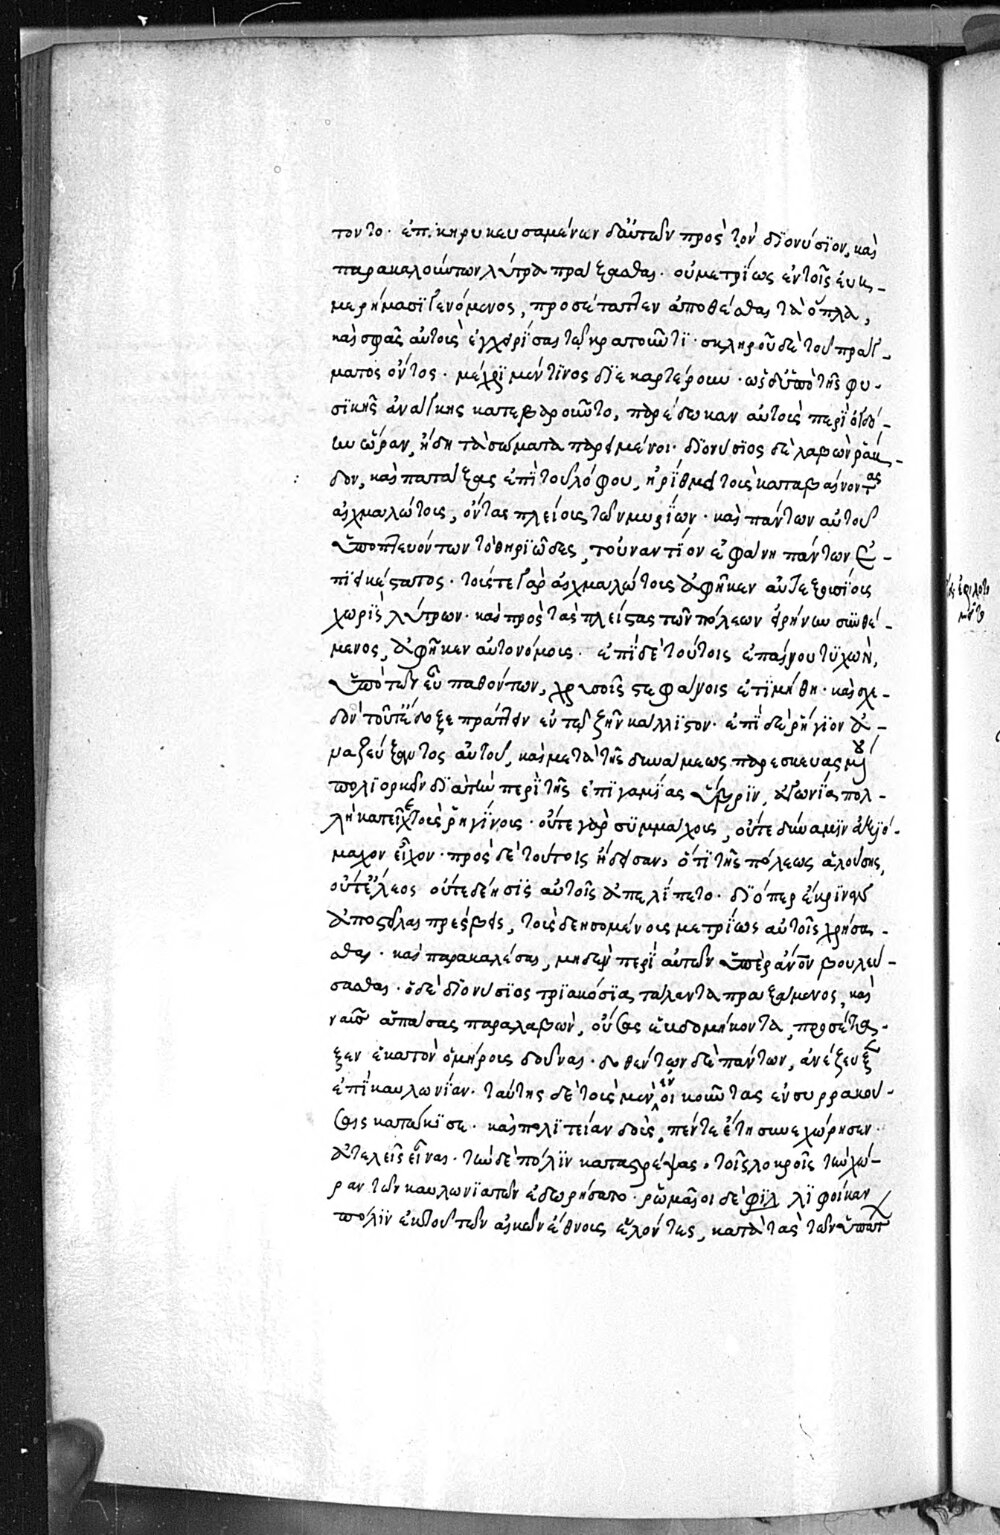 τοντο· ἐπικηρυκευσαμένων δ' αὐτῶν πρὸς τὸν διονύσιον, καὶ
παρακαλούντων λύτρα πράξασθαι· οὐ μετρίως ἐν τοῖς εὐη-
μερήμασι γενόμενος, προσέταττεν ἀποθέσθαι τὰ ὅπλα,
καὶ σφᾶς αὐτοὺς ἐγχειρίσαι τῷ κρατοῦντι· σκληροῦ δὲ τοῦ πράγ-
ματος ὄντος· μέχρι μέν τινος διεκαρτέρουν· ὡς δ' ὑπὸ τῆς φυ-
σικῆς ἀνάγκης κατεβαροῦντο, παρέδωκαν αὑτοὺς περὶ ὀγδό-
ην ὥραν, ἤδη τὰ σώματα παρειμένοι· διονύσιος δὲ λαβὼν ῥάβ-
δον, καὶ πατάξας ἐπὶ τοῦ λόφου, ἠρίθμει τοὺς καταβαίνοντας
αἰχμαλώτους, ὄντας πλείους τῶν μυρίων· καὶ πάντων αὐτοῦ
ὑποπτευόντων τὸ θηριῶδες, τοὐναντίον ἐφάνη πάντων ἐ-
πιεικέστατος· τούς τε γὰρ αἰχμαλώτους ἀφῆκεν αὐτεξουσίους
χωρὶς λύτρων· καὶ πρὸς τὰς πλείστας τῶν πόλεων εἰρήνην συνθέ-
μενος, ἀφῆκεν αὐτονόμους· ἐπὶ δὲ τούτοις ἐπαίνου τυχὼν,
ὑπὸ τῶν εὖ παθόντων, χρυσοῖς στεφάνοις ἐτιμήθη· καὶ σχε-
δὸν τοῦτ' ἔδοξε πράττειν ἐν τῷ ζῆν κάλλιστον· ἐπὶ δὲ ῥήγιον ἀ-
ναζεύξαντος αὐτοῦ, καὶ μετὰ τῆς δυνάμεως παρεσκευασμένου
πολιορκεῖν διὰ τὴν περὶ τῆς ἐπιγαμίας ὕβριν, ἀγωνία πολ-
λὴ κατεῖχε τοὺς ῥηγίνους· οὔτε γὰρ συμμάχους, οὔτε δύναμιν ἀξιό-
μαχον εἶχον· πρὸς δὲ τούτοις ᾔδεισαν, ὅτι τῆς πόλεως ἁλούσης,
οὔτ' ἔλεος οὔτε δέησις αὐτοῖς ἀπελίπετο· διόπερ ἔκριναν
ἀποστεῖλαι πρέσβεις, τοὺς δεησομένους μετρίως αὐτοῖς χρήσα-
σθαι· καὶ παρακαλέσαι, μηδὲν περὶ αὐτῶν ὑπὲρ ἄνθρωπον βουλεύ-
σασθαι· ὁ δὲ διονύσιος τριακόσια τάλαντα πραξάμενος, καὶ
ναῦς ἁπάσας παραλαβὼν, οὔσας ἑβδομήκοντα, προσέτα-
ξεν ἑκατὸν ὁμήρους δοῦναι· δοθέντων δὲ πάντων, ἀνέζευξεν
ἐπὶ καυλωνίαν· ταύτης δὲ τοὺς μὲν ἐνοικοῦντας ἐν συρρακού-
σαις κατῴκισε· καὶ πολιτείαν δοὺς, πέντε ἔτη συνεχώρησεν
ἀτελεῖς εἶναι· τὴν δὲ πόλιν κατασκάψας, τοῖς λοκροῖς τὴν χώ-
ραν τῶν καυλωνιατῶν ἐδωρήσατο· ῥωμαῖοι δὲ φιλ λιφοίκαν
πόλιν ἐκ τοῦ τῶν αἴκων ἔθνους ἑλόντες, κατὰ τὰς τῶν ὑπάτ